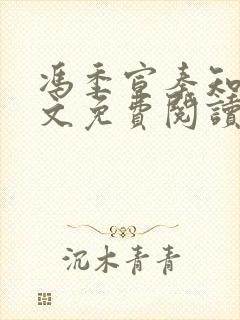 馮季宣秦知
文免費閱讀
沉木青青